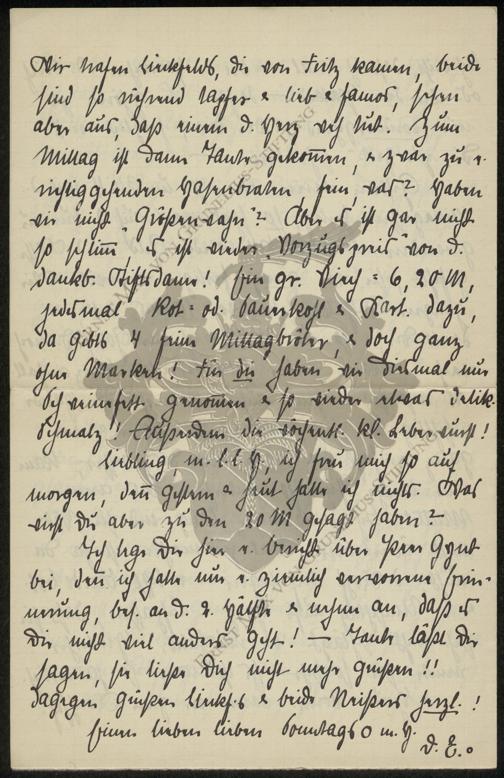 Wir trafen Linkfelds, die von Fritz kamen, beide
sind so rührend tapfer & lieb & famos, sehen
aber aus, daß einem d. Herz weh tut. Zum
Mittag ist dann Tante gekommen, & zwar zu e.
richtiggehenden Hasenbraten fein, was? Haben
wir nicht "Größenwahn"? Aber es ist gar nicht
so schlimm, es ist wieder "Vorzugspreis" von d.
dankb. Stiftsdame! Ein gr. Viech = 6,20 M,
jedesmal Rot= od. Sauerkohl & Kart. dazu,
da gibts 4 feine Mittagbröter, & doch ganz
ohne Marken! Für die haben wir diesmal nur
Schweinefett genommen & so wieder etwas delik.
Schmalz! Außerdem die wöchentl. kl. Leberwurst!
Liebling, m. l. l. H., ich freu mich so auf
morgen, denn gestern & heut hatte ich nichts. Was
wirst Du aber zu den 20 M gesagt haben? –
Ich lege Dir hier e. Bericht über Peer Gynt
bei, denn ich hatte nur e. ziemlich verworrene Erin-
nerung, bes. an d. 2. Hälfte & nehme an, daß es
Dir nicht viel anders geht! – Tante läßt Dir
sagen, sie ließe Dich nicht mehr grüßen!!
dagegen grüßen & beide Meißers herzl.!
Einen lieben lieben Sonntags O m. H.
D. E.